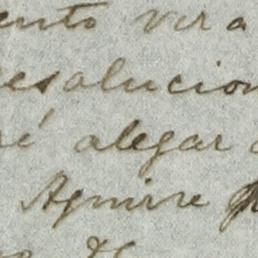 ento vera
esolucion
ré alegar
Aguirre